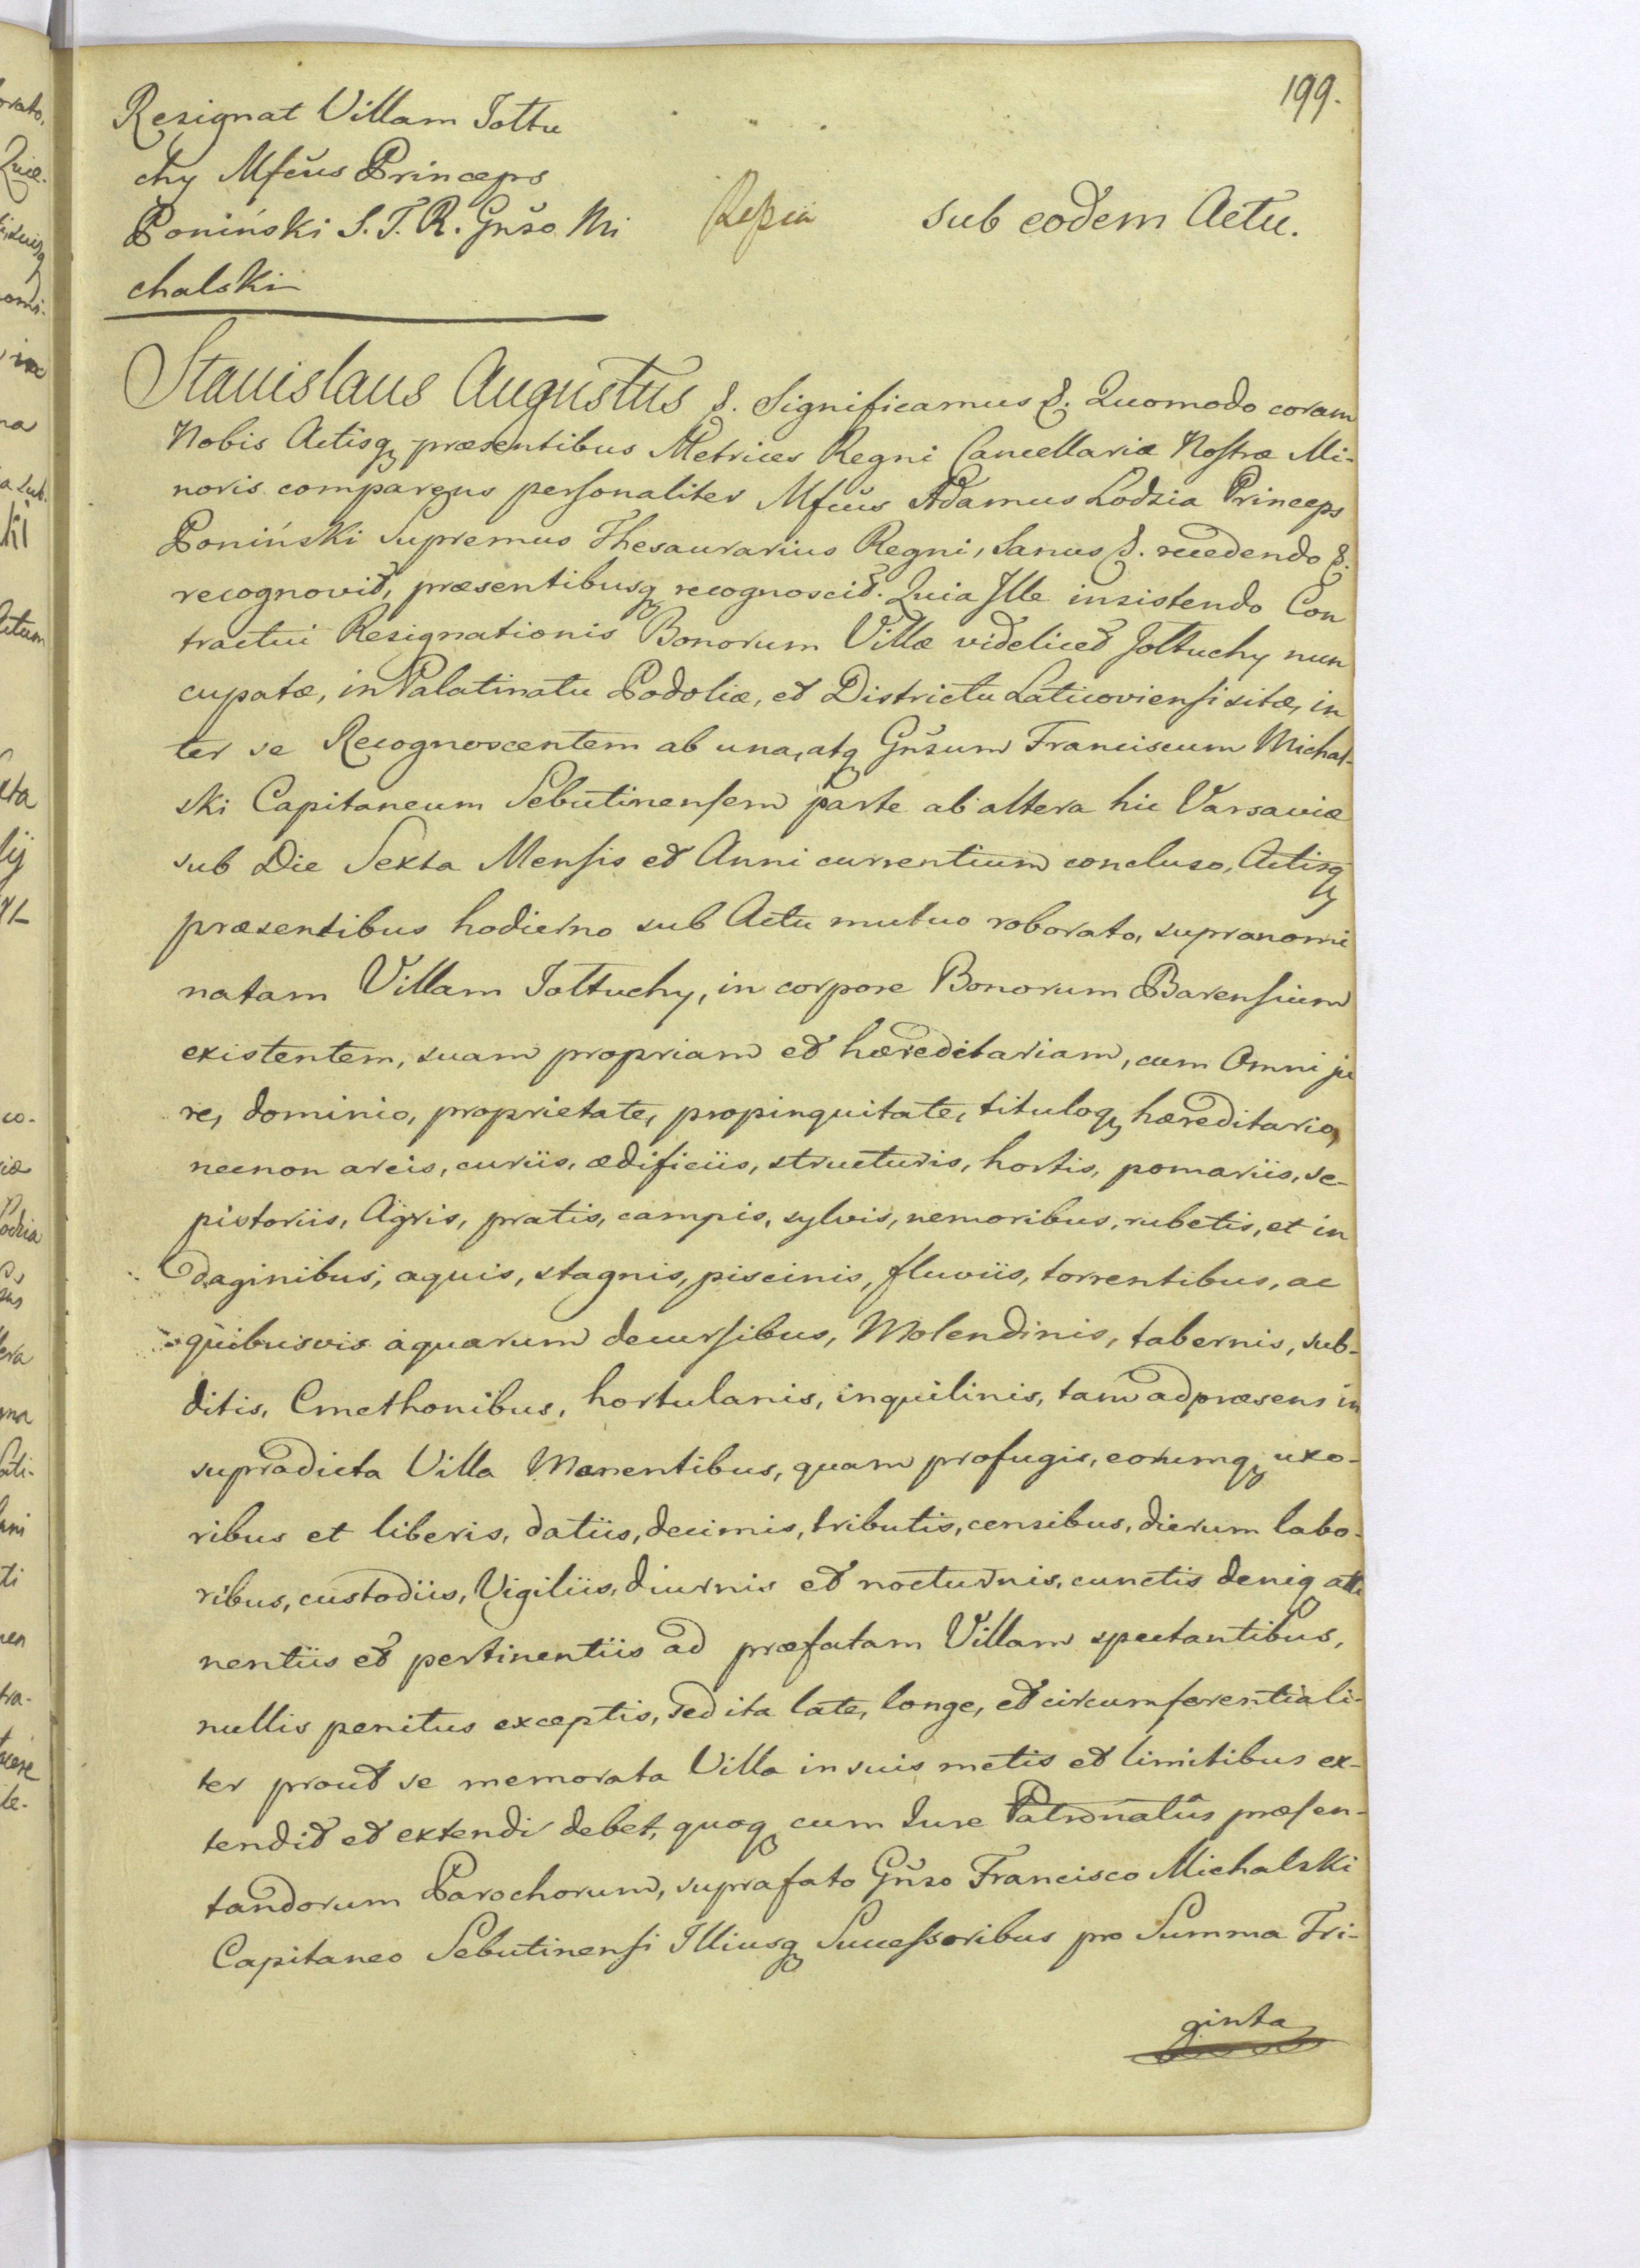 199.
Resignat Villam Joltu
chy Mfcus Princeps
Poniński S. T. R. Gnso Mi
chalski
sub eodem Actu.
Stanislaus Augustus &. Significamus &. Quomodo coram
Nobis Actisq præsentibus Metrices Regni Cancellariæ Nostræ Mi-
noris comparens personaliter Mfcus Adamus Lodzia Princeps
Poniński Supremus Thesaurarius Regni, Sanus &. recedendo &.
recognovit, præsentibusq recognoscit. Quia Ille insistendo Con
tractui Resignationis Bonorum Villæ videlicet Joltuchy nun
cupatæ, in Palatinatu Podoliæ, et Districtu Laticoviensi sitæ, in
ter se Recognoscentem ab una, atq Gnsum Franciscum Michal-
ski Capitaneum Sebutinensem parte ab altera hic Varsaviæ
sub Die Sexta Mensis et Anni currentium concluso, Actisq
præsentibus hodierno sub Actu mutuo roborato, supranomi
natam Villam Joltuchy, in corpore Bonorum Barensium
existentem, suam propriam et hæreditariam, cum Omni ju
re, dominio, proprietate, propinquitate, tituloq hæreditario,
necnon areis, curiis, ædificiis, structuris, hortis, pomariis, se-
pistoriis, Agris, pratis, campis, sylvis, nemoribus, rubetis, et in
daginibus, aquis, stagnis, piscinis, fluviis, torrentibus, ac
quibusvis aquarum decursibus, Molendinis, tabernis, sub-
ditis, Cmethonibus, hortulanis, inquilinis, tam ad præsens in
supradicta Villa Manentibus, quam profugis, eorumq uxo-
ribus et liberis, datiis, decimis, tributis, censibus, dierum labo-
ribus, custodiis, Vigiliis, diurnis et nocturnis, cunctis deniq atti
nentiis et pertinentiis ad præfatam Villam spectantibus,
nullis penitus exceptis, sed ita late, longe, et circumferentiali-
ter prout se memorata Villa in suis metis et limitibus ex-
tendit et extendi debet, quoq cum Iure Patronatûs præsen-
tandorum Parochorum, suprafato Gnso Francisco Michalski
Capitaneo Sebutinensi Illiusq Successoribus pro Summa Tri-
ginta